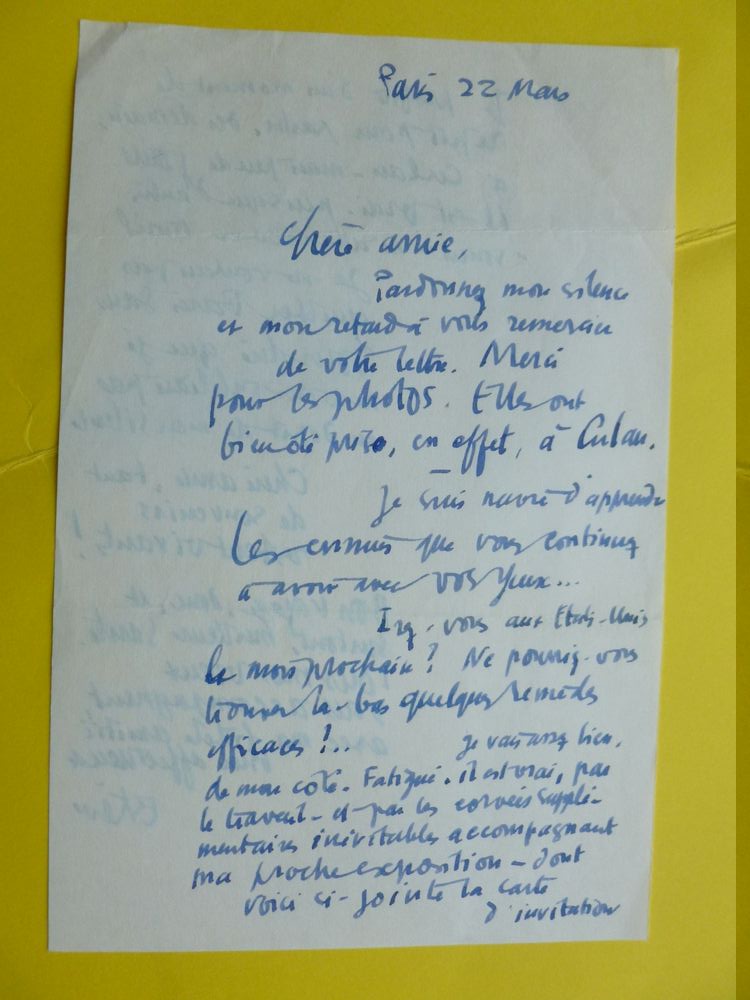 Paris 22 Mars
Chère amie,
Pardonnez mon silence
et mon retard à vous remercier
de votre lettre. Merci
pour les photos. Elles ont
bien été prises, en effet, à Culan.
Je suis navré d'apprendre
les ennuis que vous continuez
à avoir avec vos yeux...
Irez-vous aux Etats-Unis
le mois prochain ? Ne pourriez-vous
trouver là-bas quelques remèdes
efficaces ?..
Je vais assez bien,
de mon côté. Fatigué, il est vrai, par
le travail - et par les corvées supplé-
mentaires inévitables accompagnant
ma proche exposition - dont
voici ci-jointe la carte
d'invitation